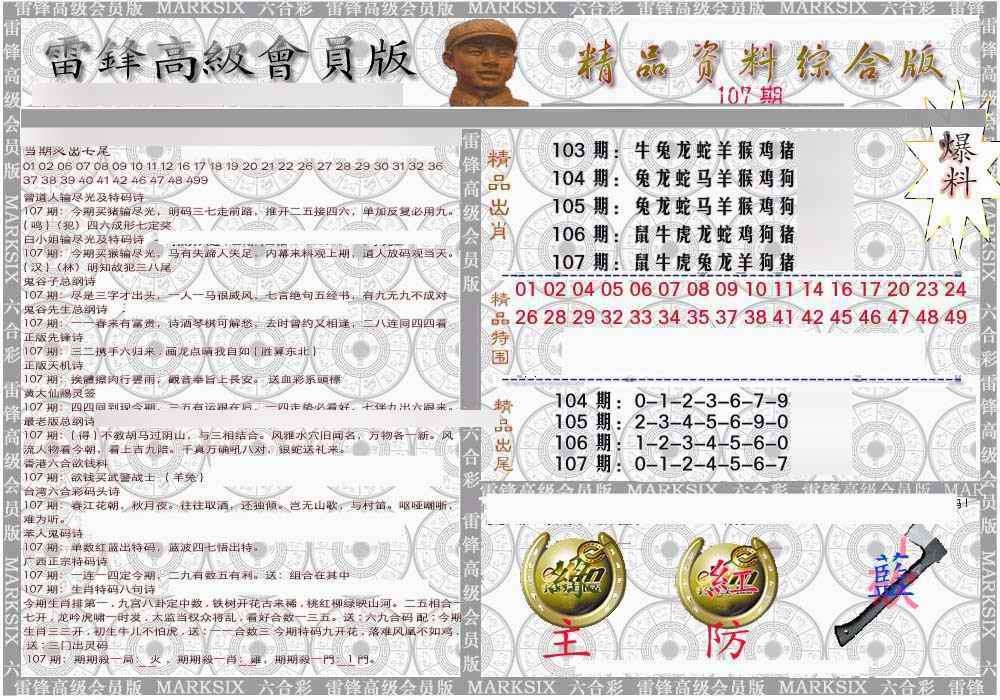 雷锋高级会员版 MARKSIX 六合彩 雷锋高级会员版 MARKSIX 六合彩 雷锋高级会员版 MARKSIX 六合彩 雷锋
雷鋒高級會員版
精品资料综合版
107 期
爆料
01 02 06 07 08 09 10 11 12 16 17 18 19 20 21 22 26 27 28 29 30 31 32 36
37 38 39 40 41 42 46 47 48 499
曾道人输尽光及特码诗
107 期：今期买猪输尽光，明码三七走前路，推开二五接四六，单加反复必用九。
{ 鸣 }（犯）四六成形七定奖
白小姐输尽光及特码诗
107 期：今期买猴输尽光，马有失蹄人失足，内幕来料观上期，道人放码观当天。
{ 汉 }（林）明知故犯三八尾
鬼谷子总纲诗
107 期：尽是三字才出头，一人一马很威风，七言绝句五经书，有九无九不成对
鬼谷先生总纲诗
107 期：一一春来有富贵，诗酒琴棋可解愁，去时曾约又相逢，二八连同四四看
正版先锋诗
107 期：三二携手六归来，画龙点晴我自如 { 胜算东北 }
正版天机诗
107 期：挨體擦肉行雲雨，觀音奉旨上長安。 送血彩系頭標
黄大仙赐灵签
107 期：四四同到现今期，三五有运跟在后，一四走势必看好，七伴九出六跟来。
最老版总纲诗
107 期：{ 得 } 不教胡马过阴山，与三相结合。风雅水穴旧闻名，万物各一新。风
流人物看今朝，看上吉九陪。千真万确吼八对，银蛇送礼来。
香港六合欲钱料
107 期：欲钱买武警战士 { 羊兔 }
台湾六合彩码头诗
107 期：春江花朝，秋月夜。往往取酒，还独倾。岂无山歌，与村笛。呕哑嘲哳，
难为听。
苯人鬼码诗
107 期：单数红蓝出特码，蓝波四七悟出特。
广西正宗特码诗
107 期：一连一四定今期，二九有数五有利。送：组合在其中
107 期：生肖特码八句诗
今期生肖排第一，九宫八卦定中数，铁树开花古来稀，桃红柳绿映山河。二五相合一
七开，龙吟虎啸一时发，太监当权众将乱，看好合数一三五。送：六九合码 配：今期
生肖三三开，初生牛儿不怕虎，送：一一合数三 今期特码九开花，落难风凰不如鸡，
送：三门出灵码
107 期：期期殺一局：火，期期殺一肖：雞，期期殺一門：1 門。
精品出肖
103 期：牛兔龙蛇羊猴鸡猪
104 期：兔龙蛇马羊猴鸡狗
105 期：兔龙蛇马羊猴鸡狗
106 期：鼠牛虎龙蛇鸡狗猪
107 期：鼠牛虎兔龙羊狗猪
精品特围
01 02 04 05 06 07 08 09 10 11 14 16 17 20 23 24
26 28 29 32 33 34 35 37 38 41 42 45 46 47 48 49
精品出尾
104 期：0-1-2-3-6-7-9
105 期：2-3-4-5-6-9-0
106 期：1-2-3-4-5-6-0
107 期：0-1-2-4-5-6-7
雷锋高级会员版 MARKSIX 六合彩 雷锋高级会员版
紅
藍
主
防
雷锋高级会员版 MARKSIX 六合彩 雷锋高级会员版 MARKSIX 六合彩 雷锋高级会员版 MARKSIX 六合彩 雷锋